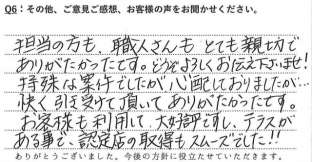 Q6：その他、ご意見ご感想、お客様の声をお聞かせください。
担当の方も、職人さんも とても親切で
ありがたかったです。どうぞよろしくお伝え下さいませ!
特殊な案件でしたが、心配しておりましたが…
快く引き受けて頂いて ありがたかったです。
お客様も利用して、大好評ですし、テラスが
ある事で、認定店の取得もスムーズでした!!
ありがとうございました。今後の方針に役立たせていただきます。